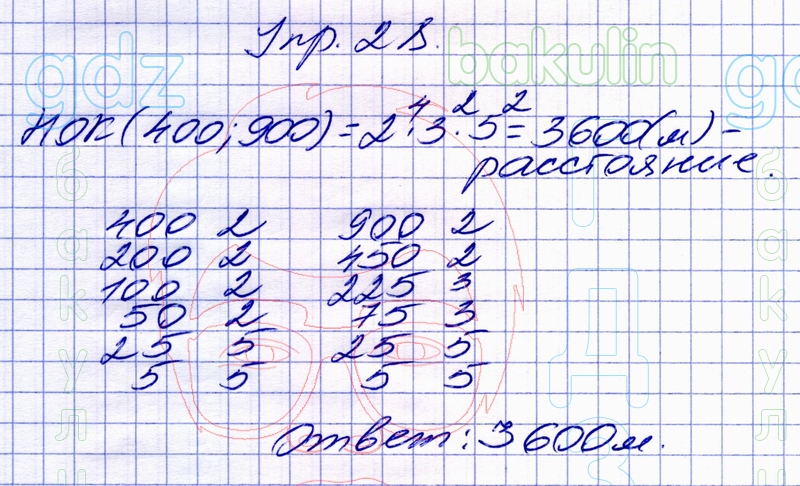 Упр. 2 В.
НОК (400; 900) = 2⁴ · 3² · 5² = 3600 (м) –
расстояние.
400 2 900 2
200 2 450 2
100 2 225 3
50 2 75 3
25 5 25 5
5 5 5 5
Ответ: 3600 м.
gdz
bakulin
gdz
бакулин
ГДЗ
бакулин